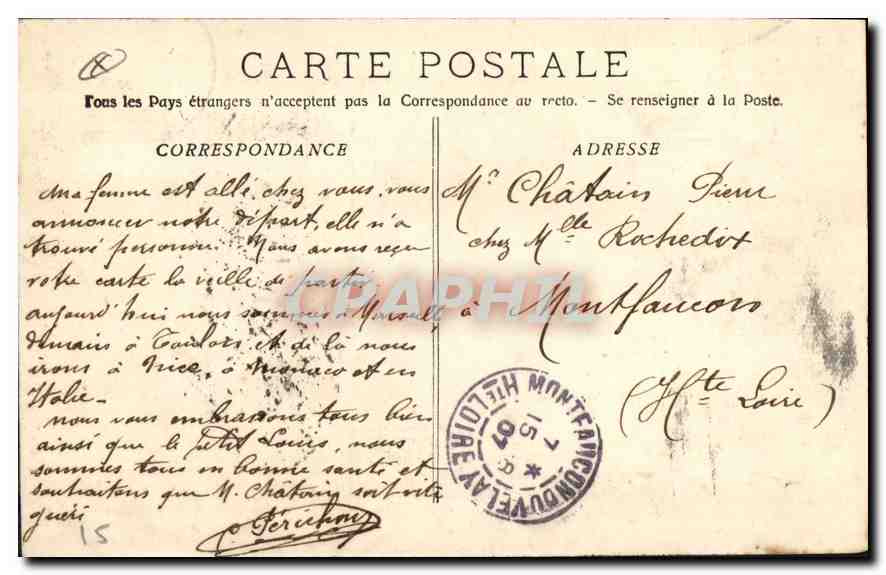 CARTE POSTALE
Tous les Pays étrangers n'acceptent pas la Correspondance au recto. - Se renseigner à la Poste.
CORRESPONDANCE
Ma femme est allé chez vous, vous
annoncer nôtre départ, elle n'a
trouvé personne. Nous avons reçu
votre carte la veille de partir
aujourd'hui nous sommes à Marseille
demain à Toulon et de là nous
irons à Nice, à Monaco et en
Italie -
nous vous embrassons tous bien
ainsi que le petit Louis, nous
sommes tous en bonne santé et
souhaitons que M. Châtain soit vite
guéri
Périchon
15
ADRESSE
Mr Châtain Pierre
chez Mlle Rochedix
à Montfaucon
(Hte Loire)
MONTFAUCON DU VELAY HTE LOIRE
7
15 * 8
07
CPAPHIL